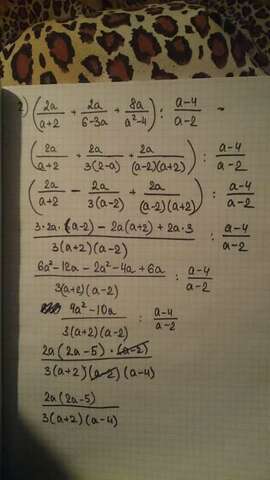 2) (2a/(a+2) + 2a/(6-3a) + 8a/(a²-4)) : (a-4)/(a-2) ~
(2a/(a+2) + 2a/(3(2-a)) + 2a/((a-2)(a+2))) : (a-4)/(a-2)
(2a/(a+2) - 2a/(3(a-2)) + 2a/((a-2)(a+2))) : (a-4)/(a-2)
(3·2a·(a-2) - 2a(a+2) + 2a·3)/(3(a+2)(a-2)) : (a-4)/(a-2)
(6a²-12a-2a²-4a+6a)/(3(a+2)(a-2)) : (a-4)/(a-2)
(4a²-10a)/(3(a+2)(a-2)) : (a-4)/(a-2)
(2a(2a-5)·(a-2))/(3(a+2)(a-2)(a-4))
(2a(2a-5))/(3(a+2)(a-4))